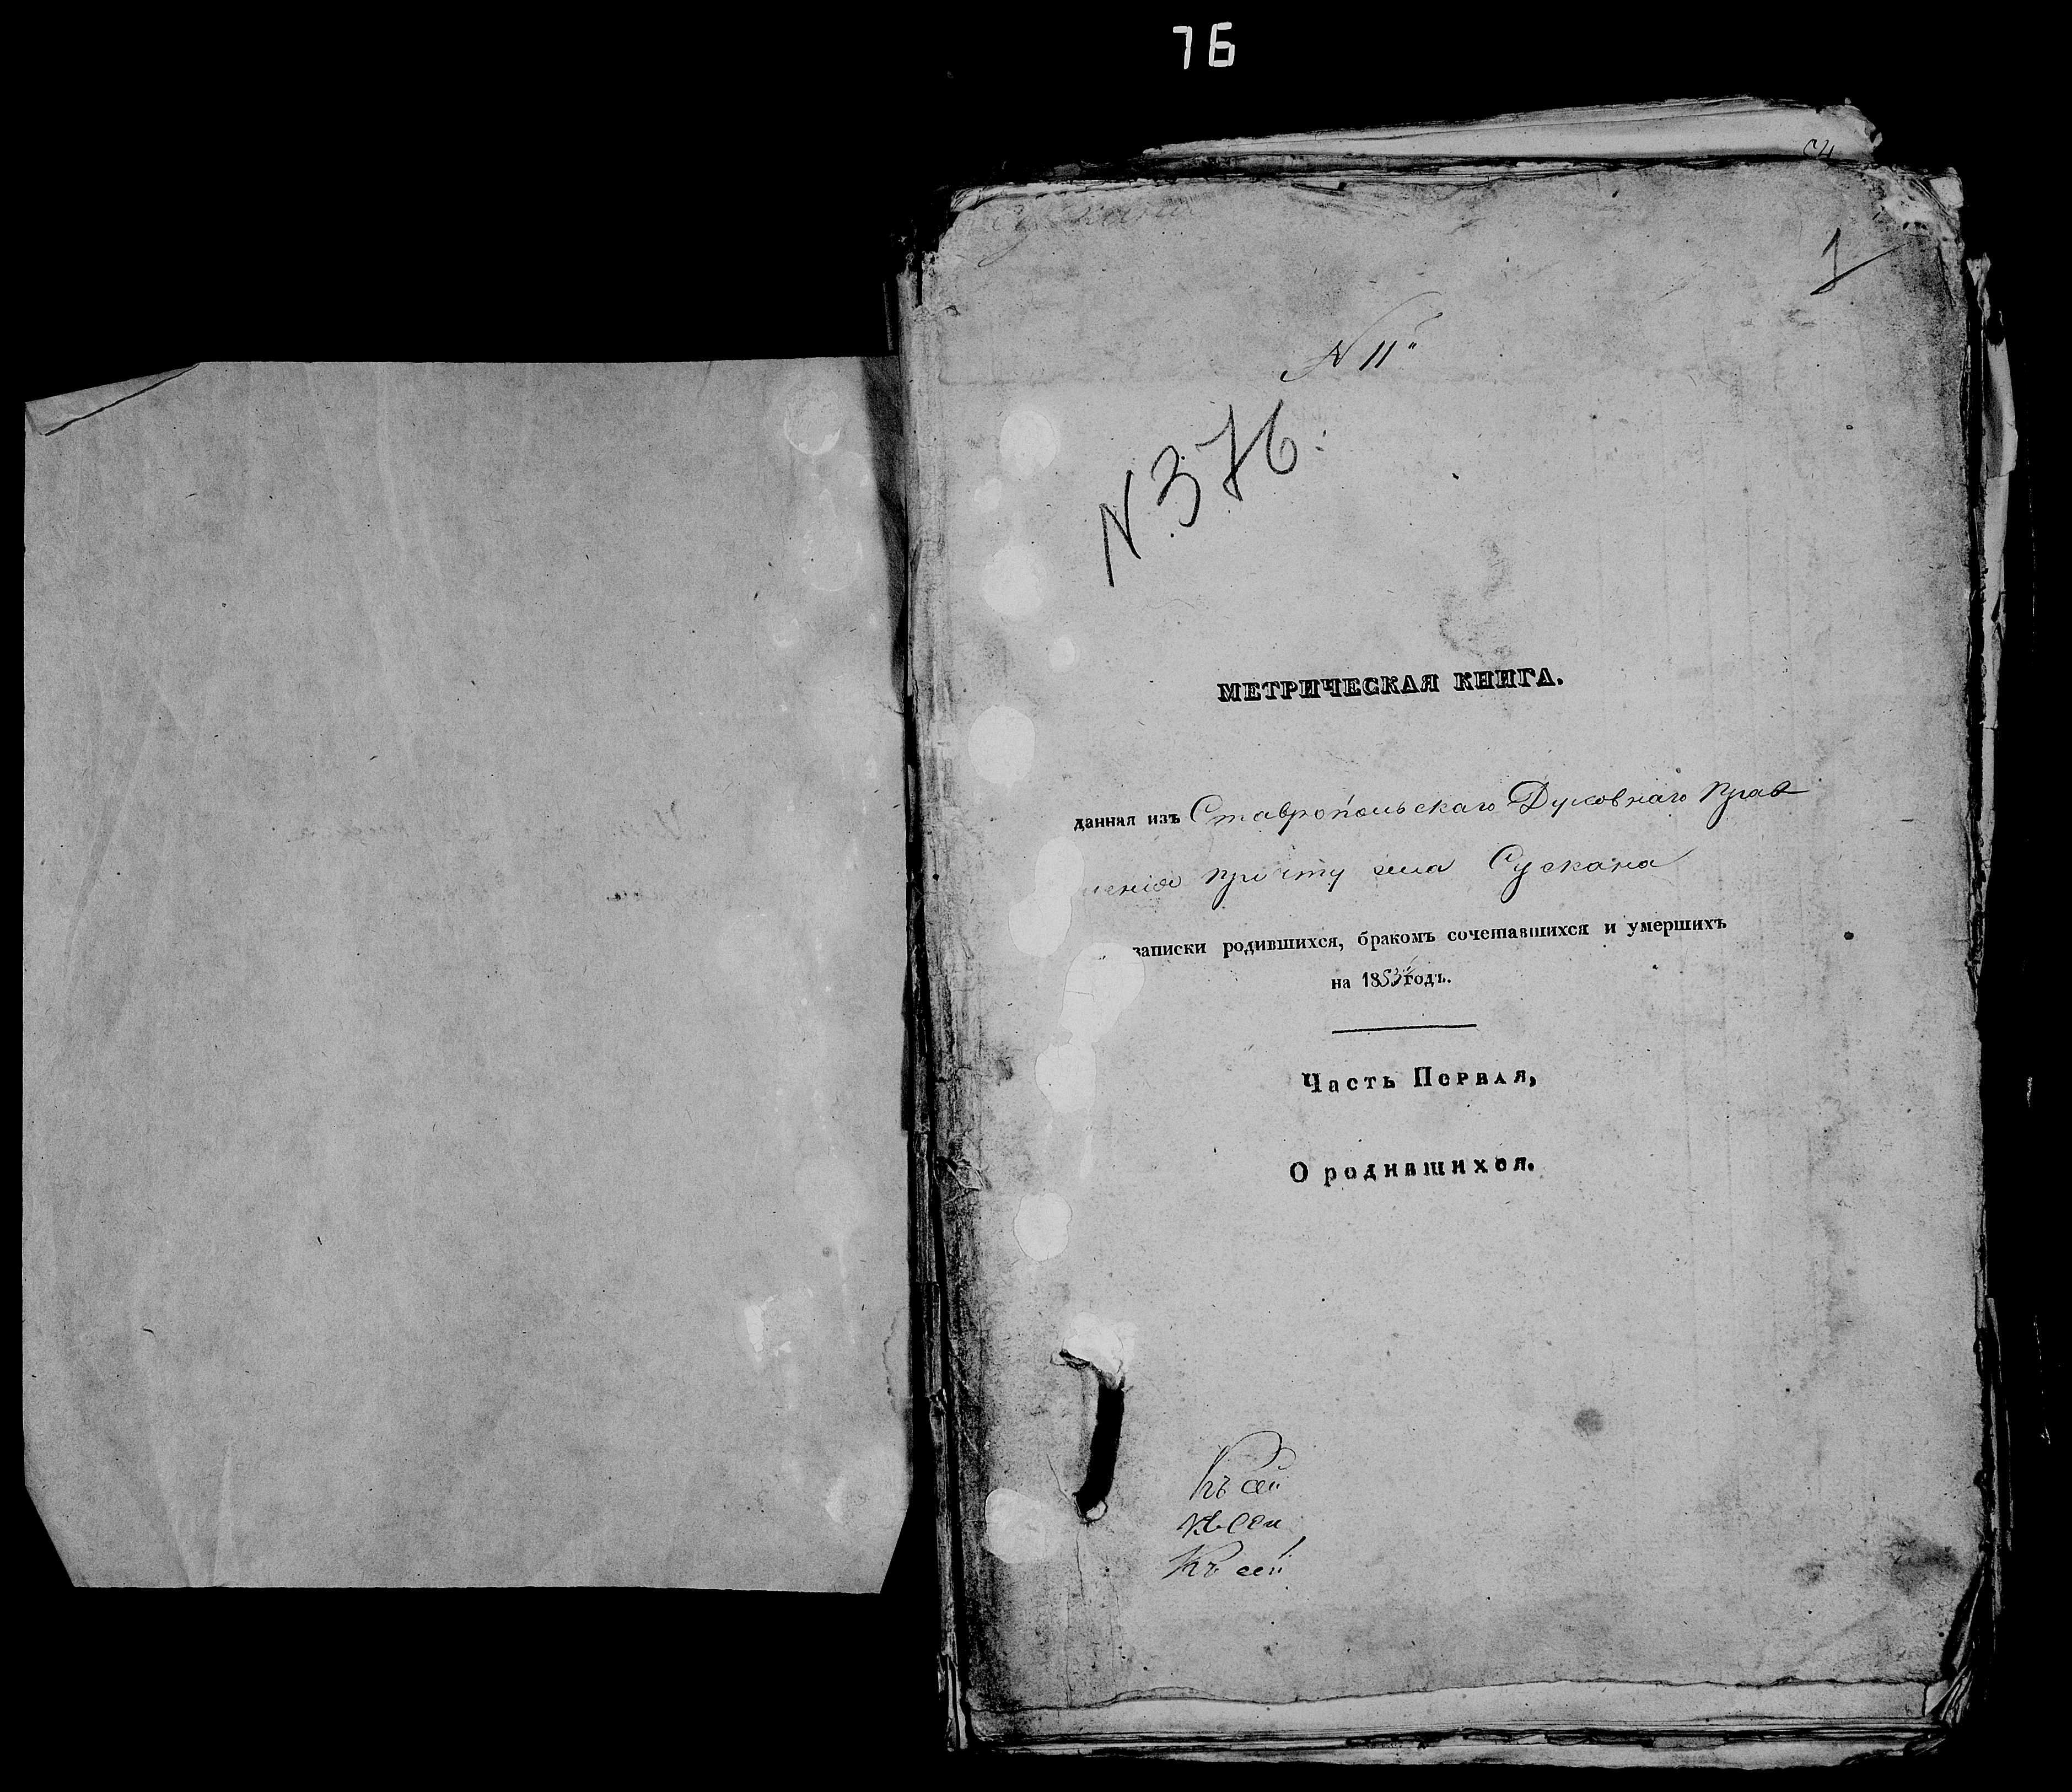 76
Сускана
1
N 11"
N. 376.
МЕТРИЧЕСКАЯ КНИГА.
данная изъ Ставропольскаго Духовнаго Прав
ленія причту села Сускана
записки родившихся, бракомъ сочетавшихся и умершихъ
на 1853 годъ.
Часть Первая,
О родившихся.
Къ сей
Къ сей
Къ сей